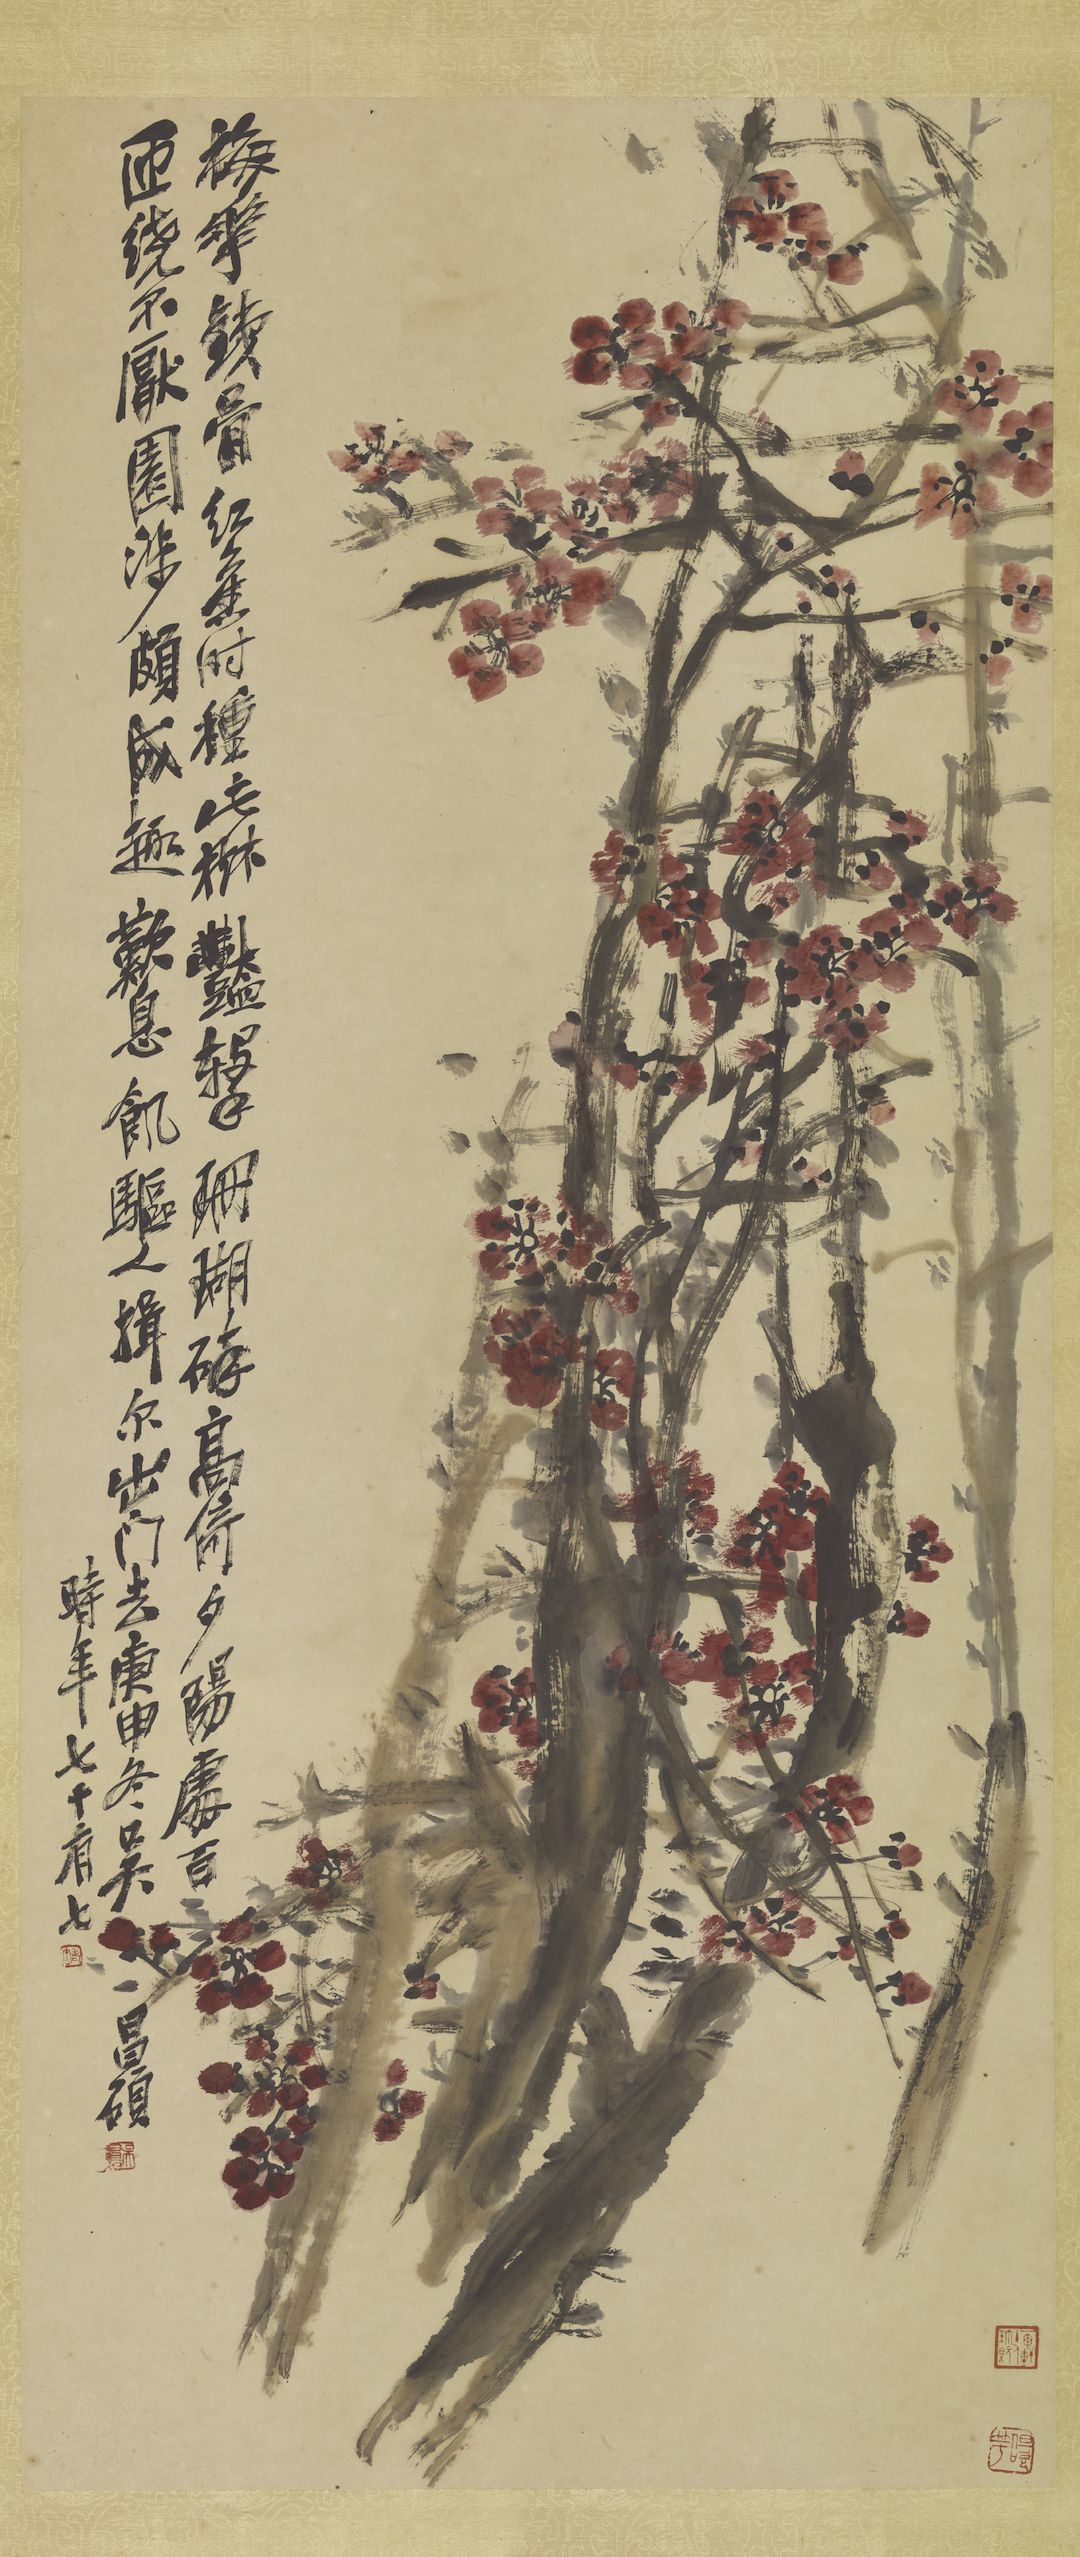 梅華鐵骨紅舊时種此樹豔擊珊瑚碎高倚夕陽處百
匝繞不厭園涉頗成趣歎息飢驅人揖尔出門去庚申冬吳昌碩
時年七十有七